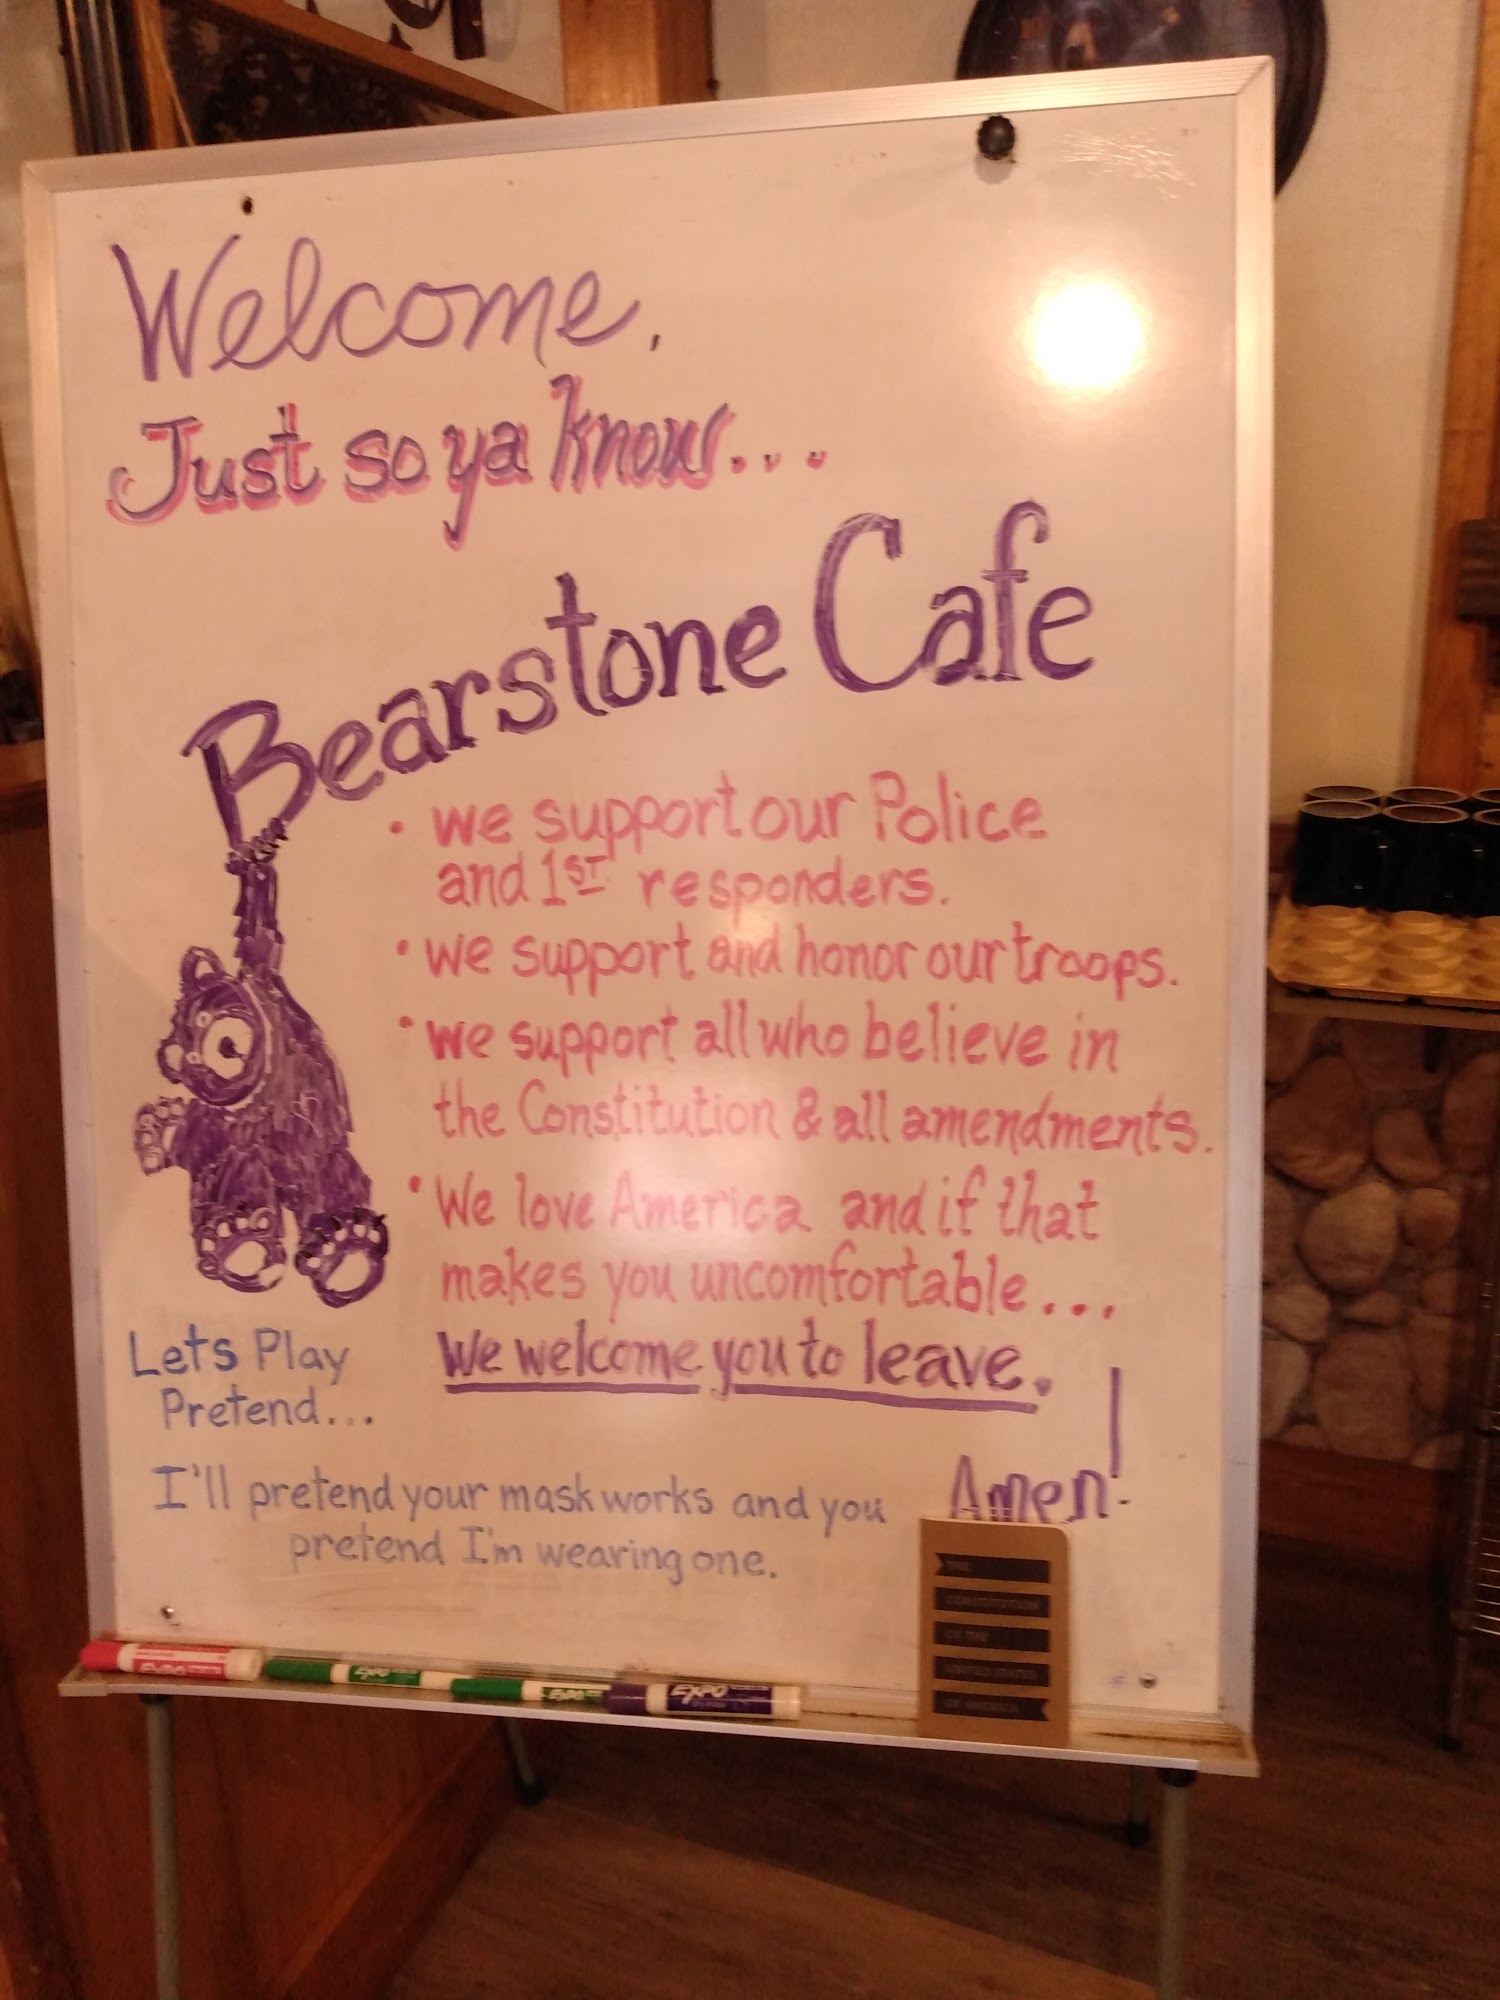 Welcome,
Just so ya know...
Bearstone Cafe
• we support our Police
and 1ST responders.
• we support and honor our troops.
• we support all who believe in
the Constitution & all amendments.
• We love America and if that
makes you uncomfortable...
We welcome you to leave.
Amen!
Lets Play
Pretend...
I'll pretend your mask works and you
pretend I'm wearing one.
THE
CONSTITUTION
OF THE
UNITED STATES
OF AMERICA
EXPO
EXPO
EXPO
EXPO